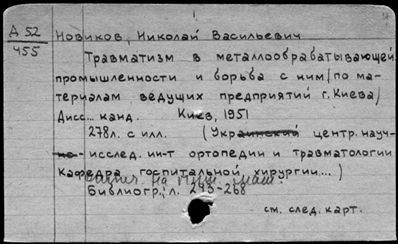 Д 52
455
Новиков, Николай Васильевич
Травматизм в металлообрабатывающей
промышленности и борьба с ним /по ма-
териалам ведущих предприятий г. Киева/
Дисс... канд. Киев, 1951
278л. с илл. (Украинский центр. науч-
но- исслед. ин-т ортопедии и травматологии
Кафедра госпитальной хирургии...)
Библиогр.: л. 243-268
см. след. карт.